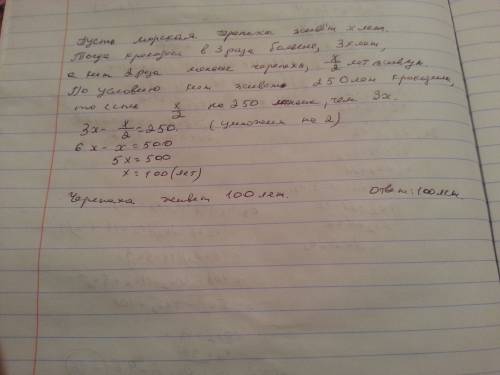 Пусть морская черепаха живёт x лет.
Тогда крокодил в 3 раза больше, 3x лет,
а кит 2 раза меньше черепахи, x/2 лет
По условию кит живёт 250 лет крокодила,
то есть x/2 на 250 меньше, чем 3x.
3x - x/2 = 250. (умножим на 2)
6x - x = 500
5x = 500
x = 100 (лет)
Черепаха живёт 100 лет. Ответ: 100 лет.